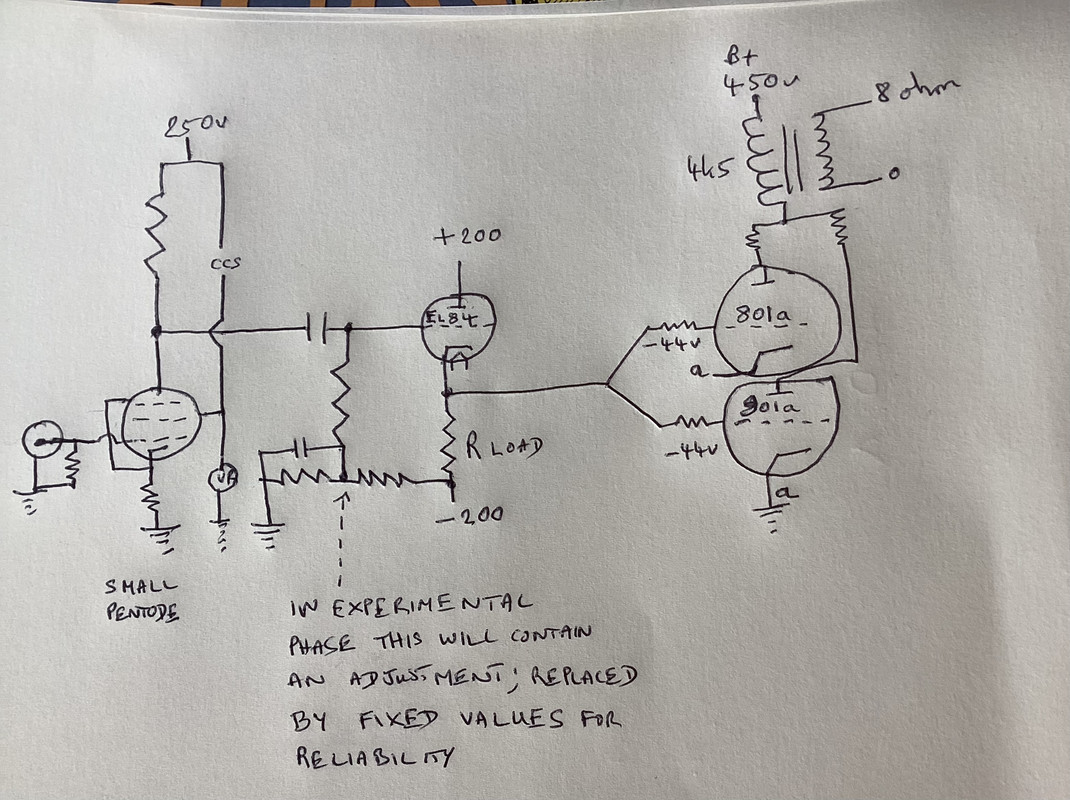 250v
CCS
VR
SMALL
PENTODE
+200
EL84
R LOAD
-200
IN EXPERIMENTAL
PHASE THIS WILL CONTAIN
AN ADJUSTMENT; REPLACED
BY FIXED VALUES FOR
RELIABILITY
B+
450v
4k5
8 ohm
0
801a
-44v
a
801a
-44v
a